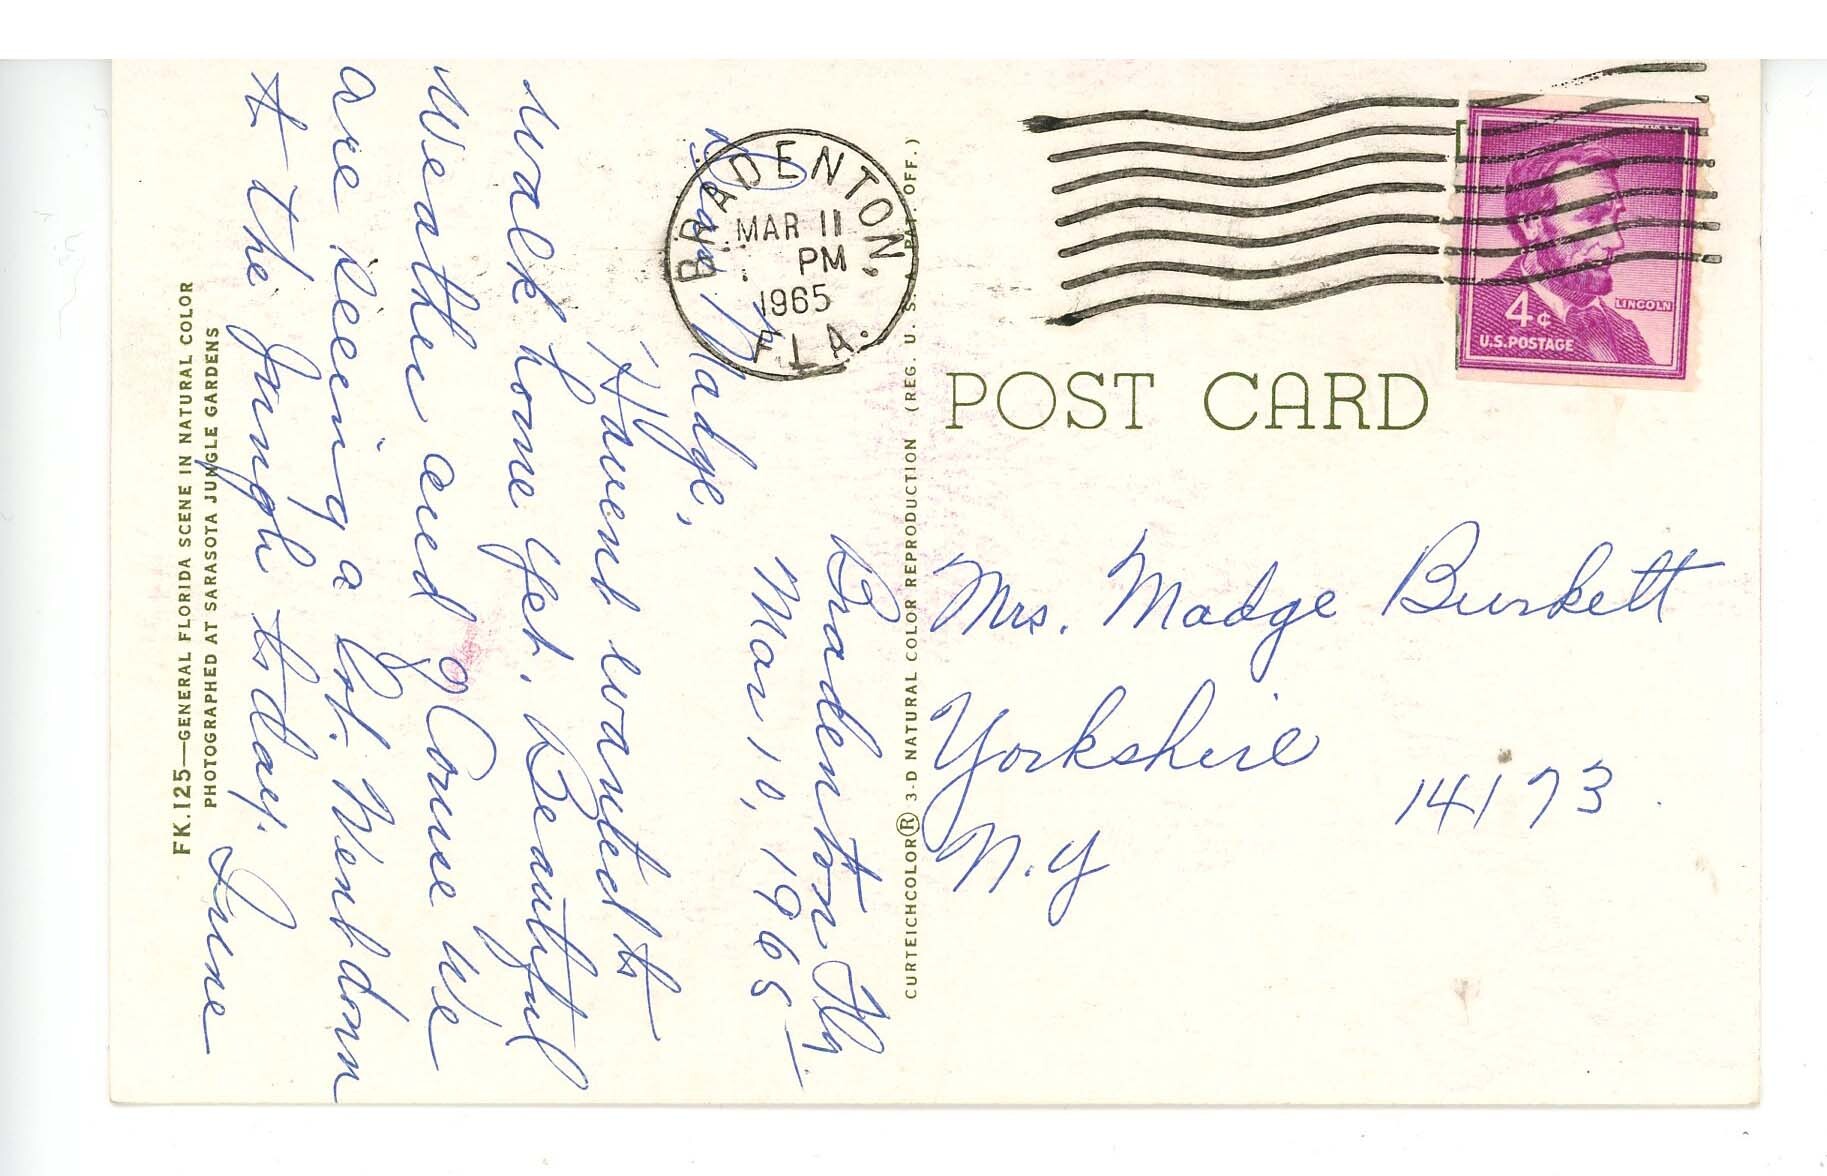 FK.125—GENERAL FLORIDA SCENE IN NATURAL COLOR
PHOTOGRAPHED AT SARASOTA JUNGLE GARDENS
Bradenton Fla.
Mar 10, 1965
Dear Madge,
Havent wanted to
walk home yet. Beautiful
Weather and of Course We
are seeing a lot. Went down
to the Jungle today.
June
BRADENTON, FLA.
MAR 11
PM
1965
CURTEICHCOLOR® 3-D NATURAL COLOR REPRODUCTION (REG. U. S. A. PAT. OFF.)
LINCOLN
4¢
U.S. POSTAGE
POST CARD
Mrs. Madge Burkett
Yorkshire
14173.
N.Y